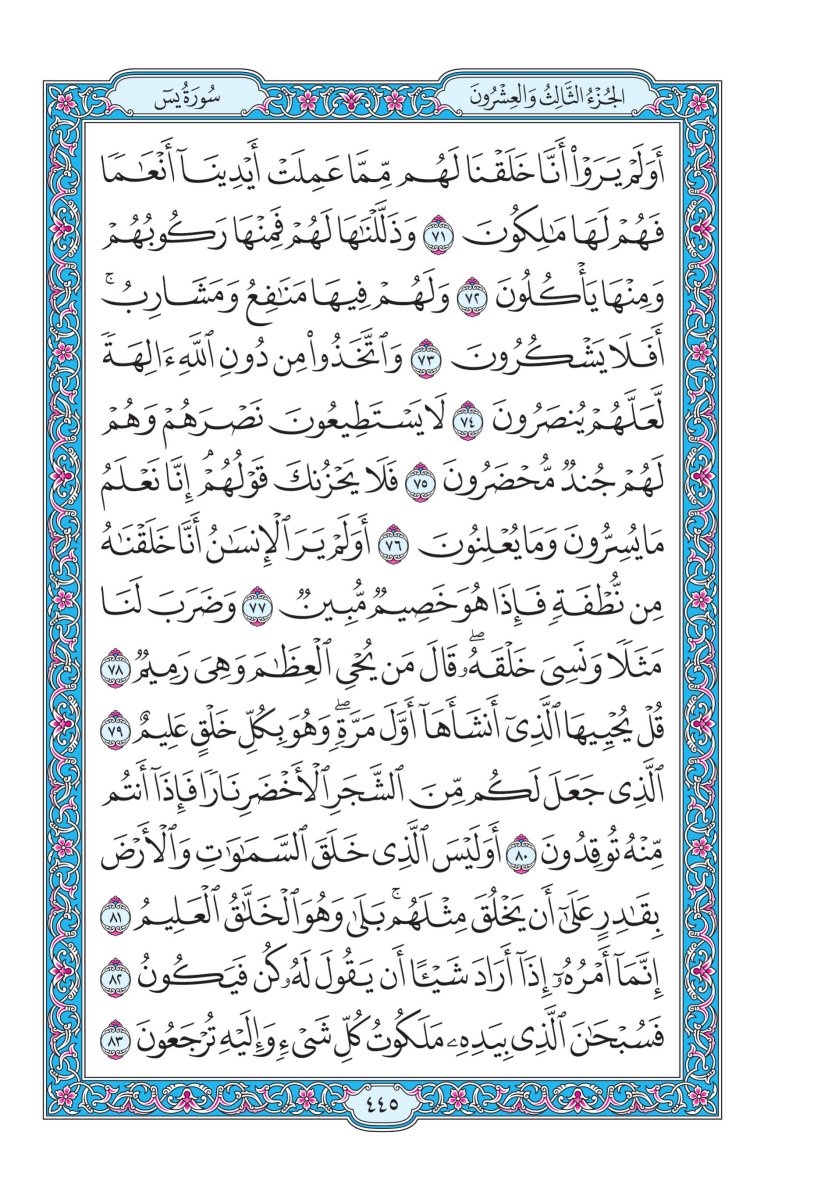 سُورَةُ يسٓ
الجُزْءُ الثَّالِثُ وَالعِشْرُونَ
أَوَلَمْ يَرَوْا۟ أَنَّا خَلَقْنَا لَهُم مِّمَّا عَمِلَتْ أَيْدِينَآ أَنْعَٰمًا
فَهُمْ لَهَا مَٰلِكُونَ ٧١ وَذَلَّلْنَٰهَا لَهُمْ فَمِنْهَا رَكُوبُهُمْ
وَمِنْهَا يَأْكُلُونَ ٧٢ وَلَهُمْ فِيهَا مَنَٰفِعُ وَمَشَارِبُ ۚ
أَفَلَا يَشْكُرُونَ ٧٣ وَٱتَّخَذُوا۟ مِن دُونِ ٱللَّهِ ءَالِهَةً
لَّعَلَّهُمْ يُنصَرُونَ ٧٤ لَا يَسْتَطِيعُونَ نَصْرَهُمْ وَهُمْ
لَهُمْ جُندٌ مُّحْضَرُونَ ٧٥ فَلَا يَحْزُنكَ قَوْلُهُمْ ۘ إِنَّا نَعْلَمُ
مَا يُسِرُّونَ وَمَا يُعْلِنُونَ ٧٦ أَوَلَمْ يَرَ ٱلْإِنسَٰنُ أَنَّا خَلَقْنَٰهُ
مِن نُّطْفَةٍ فَإِذَا هُوَ خَصِيمٌ مُّبِينٌ ٧٧ وَضَرَبَ لَنَا
مَثَلًا وَنَسِىَ خَلْقَهُۥ ۖ قَالَ مَن يُحْىِ ٱلْعِظَٰمَ وَهِىَ رَمِيمٌ ٧٨
قُلْ يُحْيِيهَا ٱلَّذِىٓ أَنشَأَهَآ أَوَّلَ مَرَّةٍ ۖ وَهُوَ بِكُلِّ خَلْقٍ عَلِيمٌ ٧٩
ٱلَّذِى جَعَلَ لَكُم مِّنَ ٱلشَّجَرِ ٱلْأَخْضَرِ نَارًا فَإِذَآ أَنتُم
مِّنْهُ تُوقِدُونَ ٨٠ أَوَلَيْسَ ٱلَّذِى خَلَقَ ٱلسَّمَٰوَٰتِ وَٱلْأَرْضَ
بِقَٰدِرٍ عَلَىٰٓ أَن يَخْلُقَ مِثْلَهُم ۚ بَلَىٰ وَهُوَ ٱلْخَلَّٰقُ ٱلْعَلِيمُ ٨١
إِنَّمَآ أَمْرُهُۥٓ إِذَآ أَرَادَ شَيْـًٔا أَن يَقُولَ لَهُۥ كُن فَيَكُونُ ٨٢
فَسُبْحَٰنَ ٱلَّذِى بِيَدِهِۦ مَلَكُوتُ كُلِّ شَىْءٍ وَإِلَيْهِ تُرْجَعُونَ ٨٣
٤٤٥